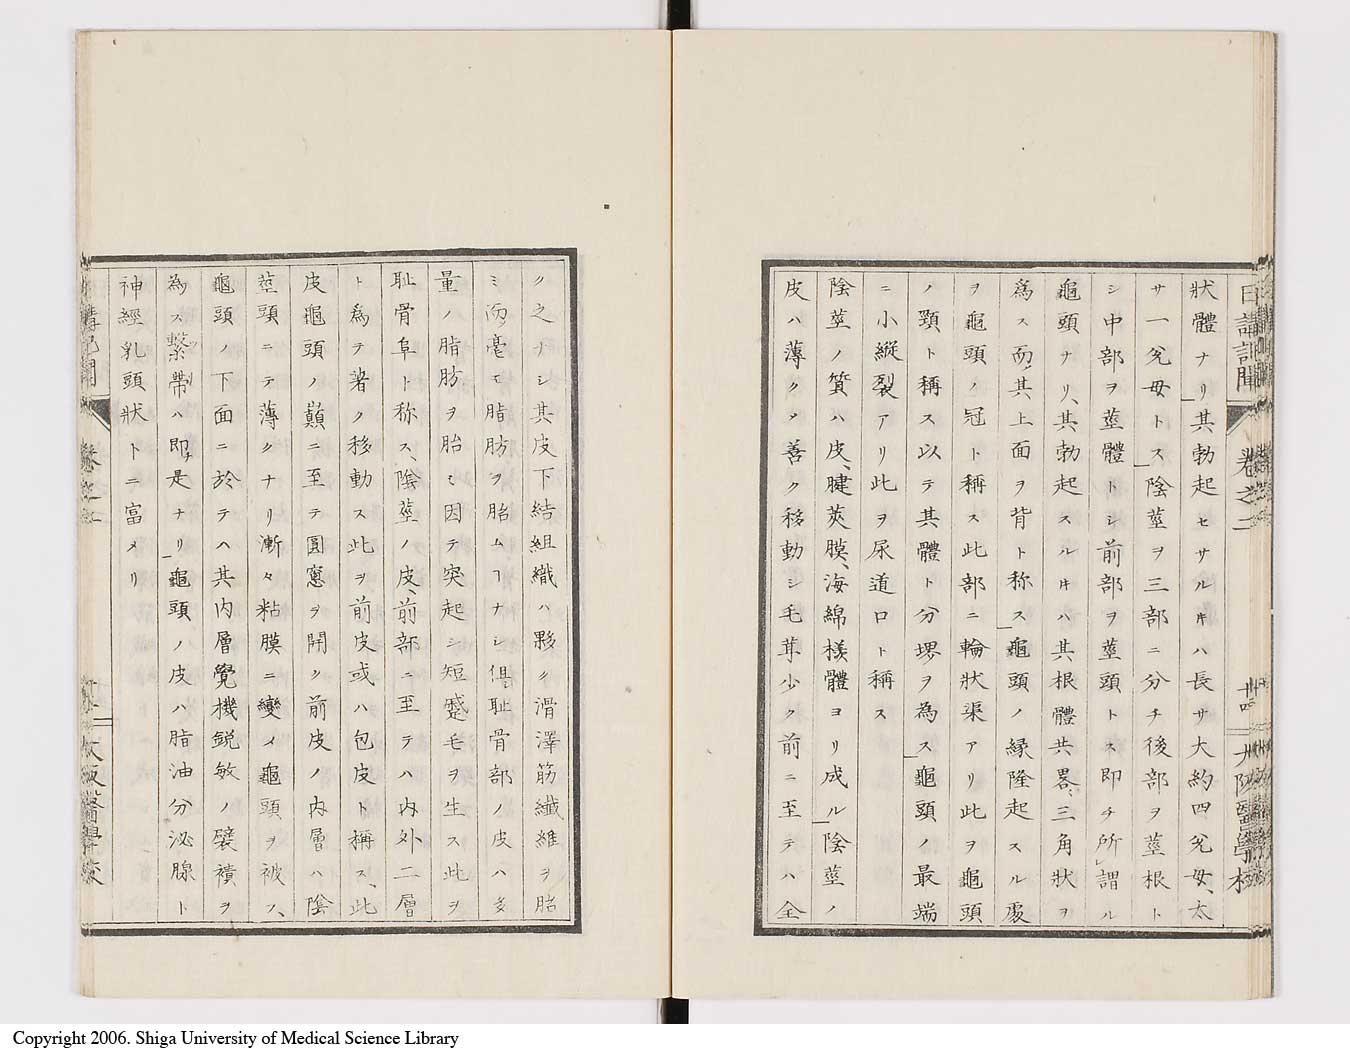 日講記聞 卷之二 廿四 大阪醫學校
狀體ナリ其勃起セサルキハ長サ大約四兊母、太
サ一兊母トス陰莖ヲ三部ニ分チ後部ヲ莖根ト
シ中部ヲ莖體トシ前部ヲ莖頭トス即チ所謂ル
龜頭ナリ、其勃起スルキハ其根體共畧三角狀ヲ
爲ス而其上面ヲ背ト称ス龜頭ノ縁隆起スル處
ヲ龜頭ノ冠ト稱ス此部ニ輪狀渠アリ此ヲ龜頭
ノ頸ト稱ス以テ其體ト分堺ヲ為ス龜頭ノ最端
ニ小縱裂アリ此ヲ尿道口ト稱ス
陰莖ノ質ハ皮、腱莢膜、海綿樣體ヨリ成ル陰莖ノ
皮ハ薄クメ善ク移動シ毛茸少ク前ニ至テハ全
ク之ナシ其皮下結組織ハ夥ク滑澤筋纖維ヲ胎
ミ而毫モ脂肪ヲ胎ムヿナシ但耻骨部ノ皮ハ多
量ノ脂肪ヲ胎ミ因テ突起シ短蹙毛ヲ生ス此ヲ
耻骨阜ト称ス、陰莖ノ皮、前部ニ至テハ内外二層
ト爲テ著ク移動ス此ヲ前皮或ハ包皮ト稱ス、此
皮龜頭ノ巓ニ至テ圓窻ヲ開ク前皮ノ内層ハ陰
莖頭ニテ薄クナリ漸々粘膜ニ變メ龜頭ヲ被フ、
龜頭ノ下面ニ於テハ其内層覺機鋭敏ノ襞襀ヲ
為ス繋帶ハ即チ是ナリ龜頭ノ皮ハ脂油分泌腺ト
神經乳頭狀トニ富メリ
日講記聞 卷之二 大阪醫學校